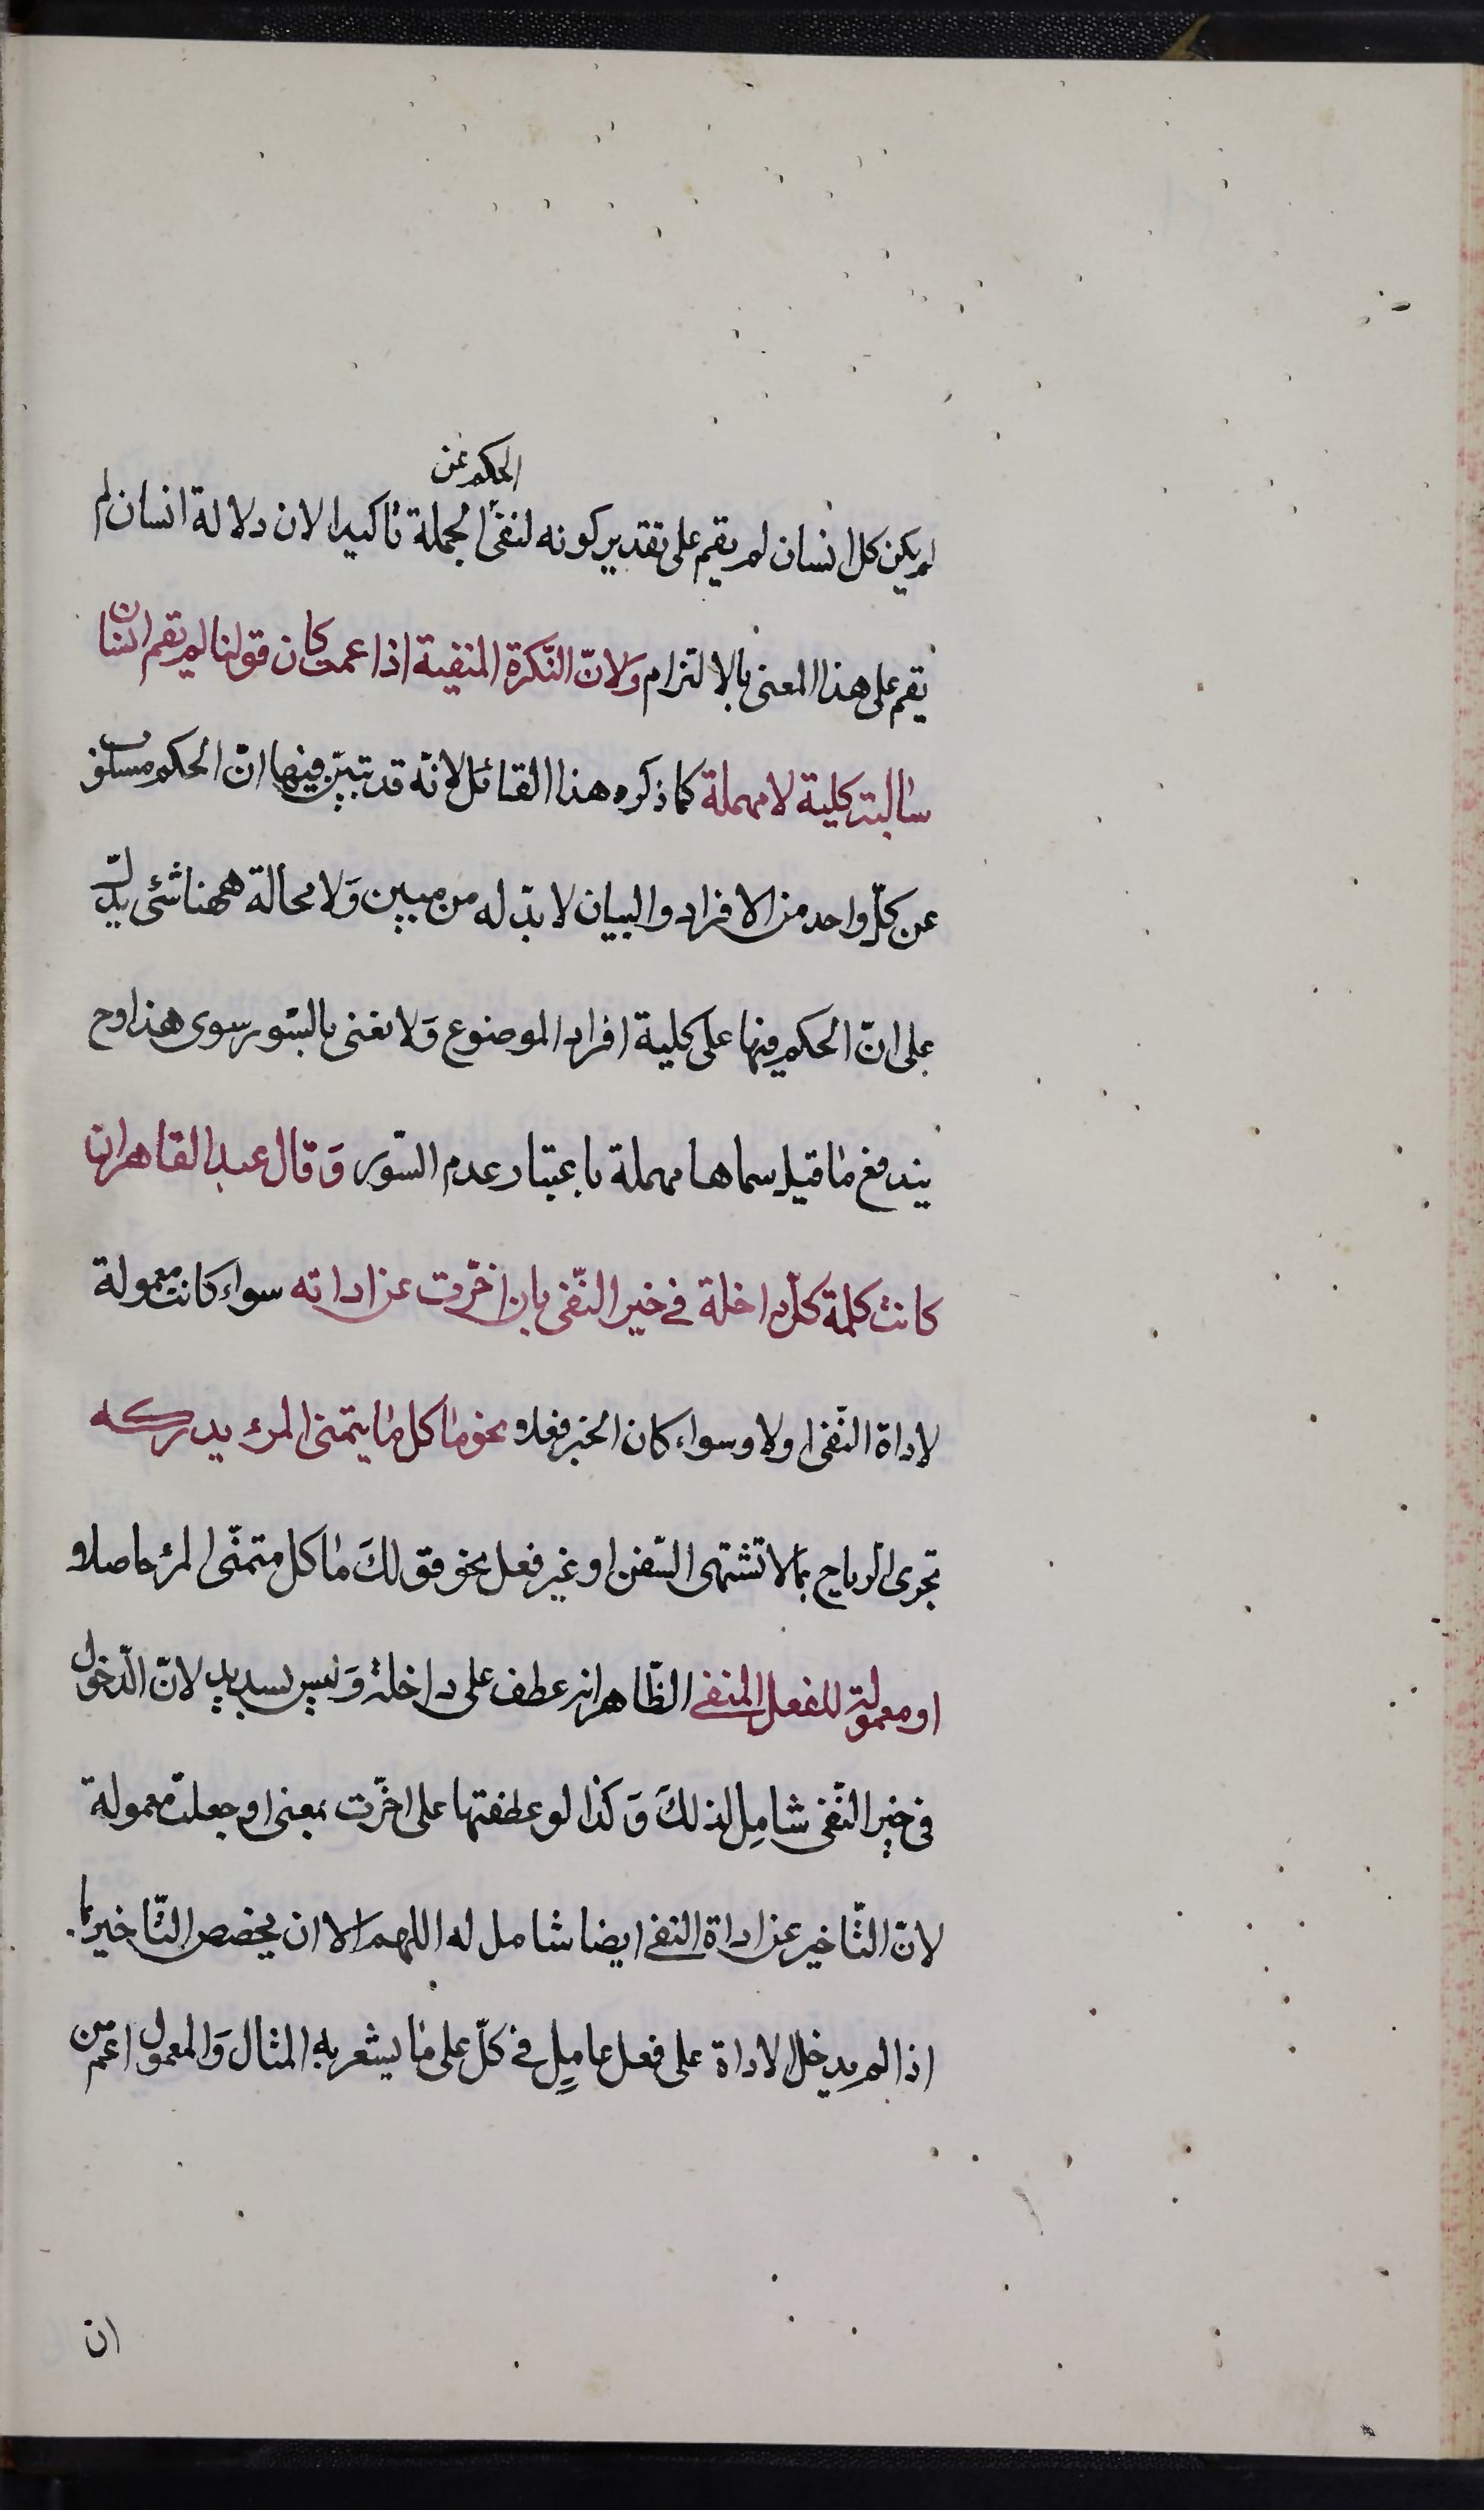 الحكم عن
لم يكن كل انسان لم يقم على تقدير كونه لنفى الجملة تاكيدا لان دلالة انسان لم
يقم على هذا المعنى بالالتزام وَلانّ النّكرة المنفية اذا عمت كان قولنا لم يقم انسان
سالبة كلية لا مهملة كما ذكره هذا القائل لانّه قد تبيّن فيها انّ الحكم مسلوب
عن كلّ واحد من الافراد والبيان لا بدّ له من مبين وَلا محالة ههنا شئ يدلّ
على انّ الحكم فيها على كلية افراد الموضوع وَلا نعنى بالسّور سوى هذا وح
يندفع ما قيل سماها مهملة باعتبار عدم السّور وَقال عبد القاهر ان
كانت كلمة كلّ داخلة في حيز النّفى بان اخّرت عن اداته سواء كانت معمولة
لاداة النّفى اولا وسواء كان الخبر فعلا نحو ما كل ما يتمنى المرء يدركه
تجرى الرياح بما لا تشتهى السّفن او غير فعل نحو قولكَ ما كل متمنّى المرء حاصلا و
او معمولة للفعل المنفى الظّاهر انه عطف على داخلة وَليس بسديد لانّ الدّخول
في حيز النّفى شامل لذلكَ وَكذا لو عطفتها على اخّرت بمعنى او جعلت معمولة
لانّ التّاخير عن اداة النفى ايضا شامل له اللهم الا ان يخصص التّاخير بما
اذا لم يدخل الاداة على فعل عاملٍ في كلّ على ما يشعر به المثال وَالمعمول اعم من
ان